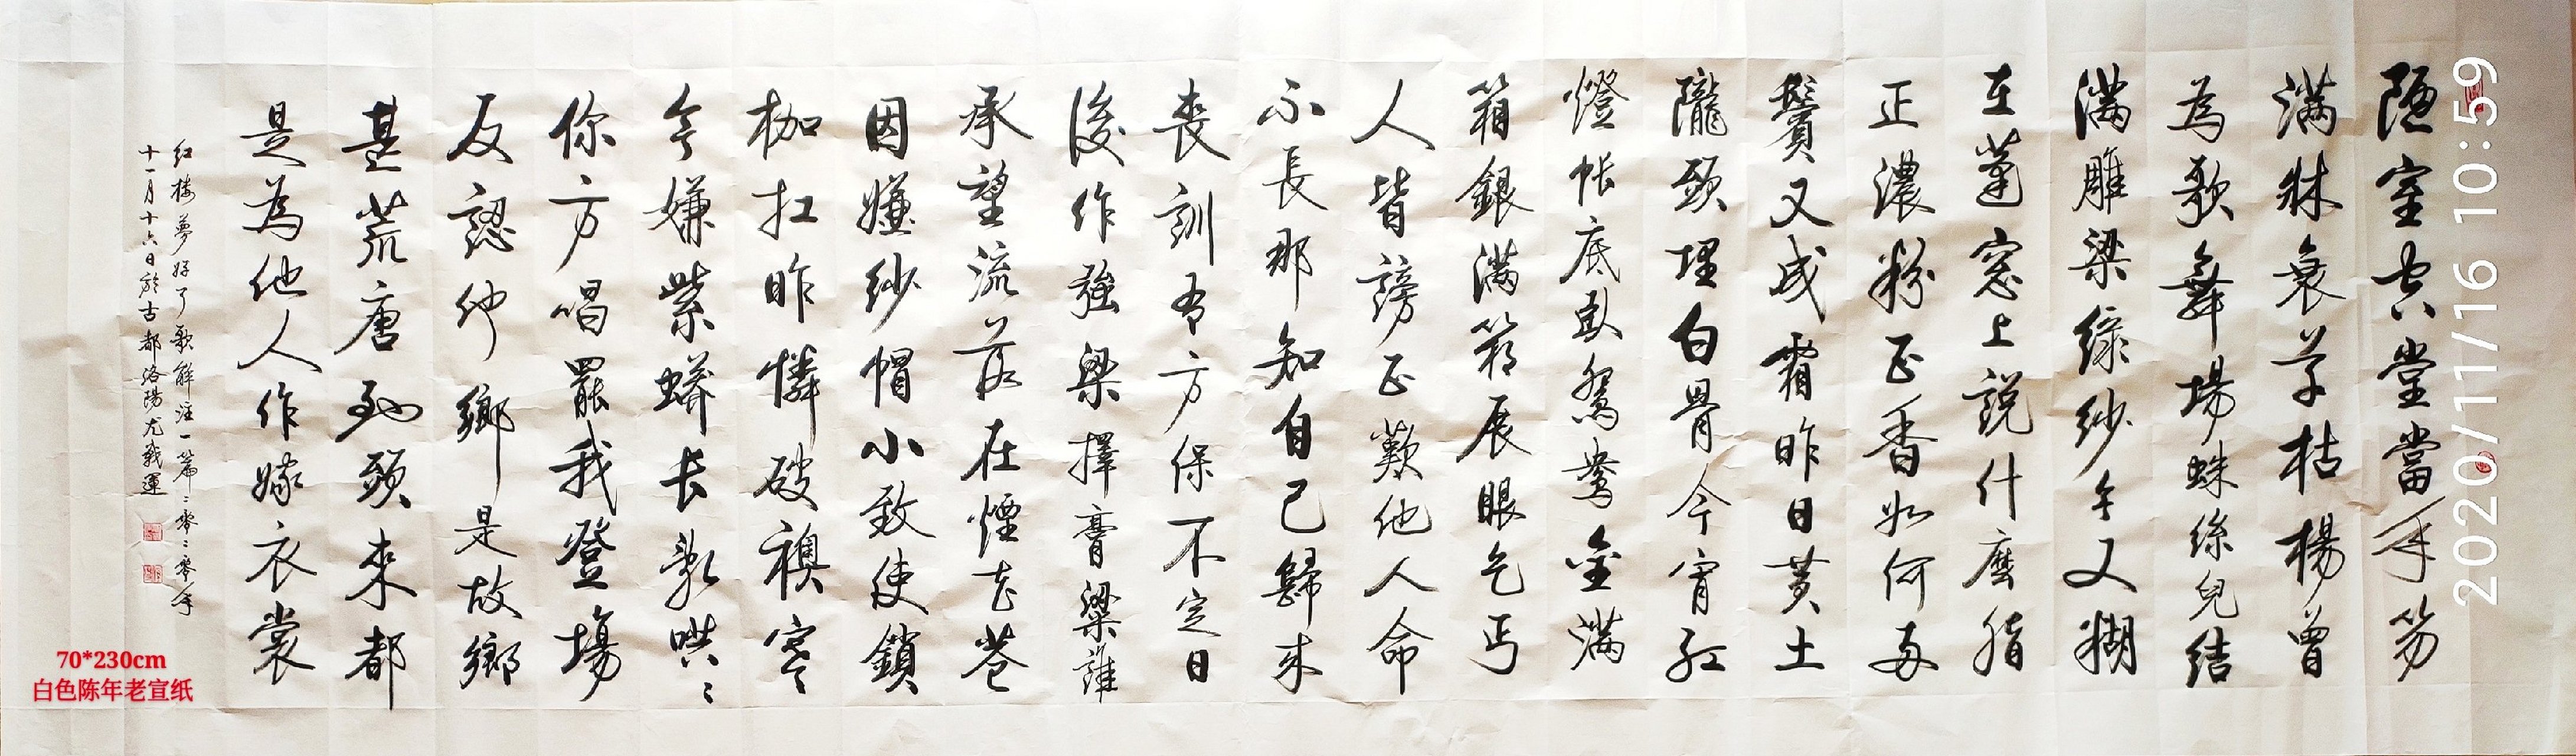 陋室空堂當年笏
满牀衰草枯楊曾
為歌舞場蛛絲兒結
满雕梁綠紗今又糊
在蓬窓上説什麽脂
正濃粉正香如何兩
鬢又成霜昨日黄土
隴頭埋白骨今宵紅
燈帳底臥鴛鴦金满
箱銀满箱展眼乞丐
人皆謗正歎他人命
不長那知自己歸来
喪訓有方保不定日
後作强梁擇膏粱誰
承望流落在煙花巷
因嫌紗帽小致使鎖
枷扛昨憐破襖寒
今嫌紫蟒长亂哄〻
你方唱罷我登場
反認他鄉是故鄉
甚荒唐到頭來都
是為他人作嫁衣裳
红樓夢好了歌解注一篇二零二零年
十一月十六日於古都洛陽尤戰運
2020/11/16 10:59
70*230cm
白色陈年老宣纸